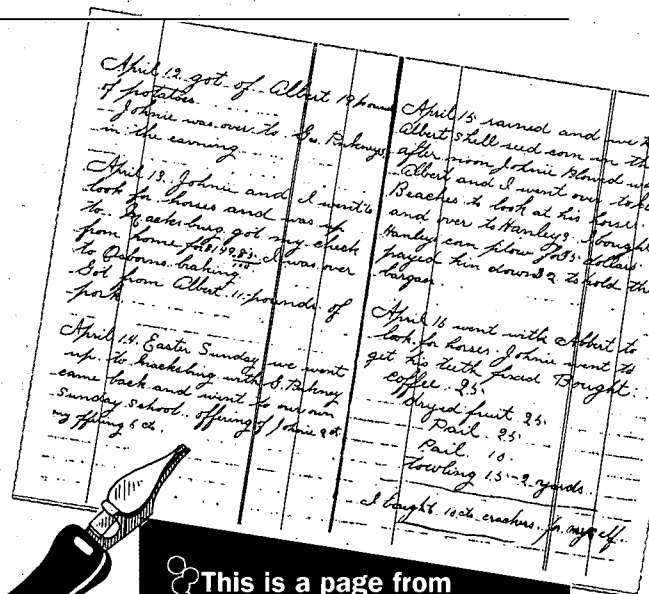 April 12 got of Albert 19 pounds
of potatoes
Johnie was over to Geo
in the earning
April 13. Johnie and I went to
look for horses and was up
to Macksburg got my check
from home for I was over
to Osborns baking
Got from Albert 11 pounds of
pork
April 14. Easter Sunday we went
up to Macksburg with S.
came back and went to our own
Sunday school. offering of Johnie 2 ct
my offering 5 ct.
April 15 rained and we
Albert shell seed corn in
after noon Johnie
Albert and I went over to
Beaches to look at his horse
and over to Hanleys. I bought
Hanley can plow for 35 dollars
payed him down $2 to hold
bargan
April 16 went with Albert to
look for horses Johnie went to
get his teeth fixed Bought
coffee 25
dryed fruit 25
Pail 25
Pail 10
towling 15-2 yards
I bought 10 cts crackers for myself.
This is a page from